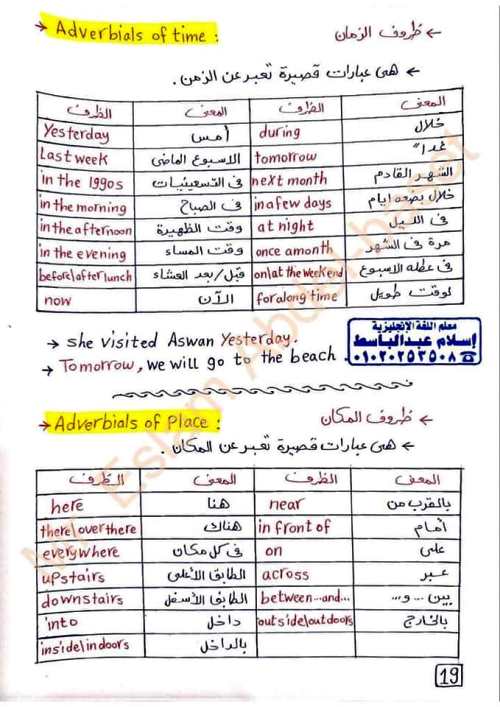 → Adverbials of time : ← ظروف الزمان
← هى عبارات قصيرة تعبر عن الزمن .
الظرف المعنى الظرف المعنى
Yesterday أمس during خلال
Last week الاسبوع الماضى tomorrow غداً
in the 1990s فى التسعينيات next month الشهر القادم
in the morning فى الصباح in a few days خلال بضعه ايام
in the afternoon وقت الظهيرة at night فى الليل
in the evening وقت المساء once a month مرة فى الشهر
before/after lunch قبل/بعد العشاء on/at the weekend فى عطله الاسبوع
now الآن for a long time لوقت طويل
→ She visited Aswan Yesterday.
→ Tomorrow, we will go to the beach.
معلم اللغة الإنجليزية
إسلام عبدالباسط
٠١٠٢٠٢٥٣٥٠٨
→ Adverbials of Place : ← ظروف المكان
← هى عبارات قصيرة تعبر عن المكان .
الظرف المعنى الظرف المعنى
here هنا near بالقرب من
there/over there هناك in front of أمام
everywhere فى كل مكان on على
upstairs الطابق الأعلى across عبر
downstairs الطابق الأسفل between...and... بين ... و...
into داخل outside/outdoors بالخارج
inside/indoors بالداخل
19
Mr. Eslam Abdel-baset